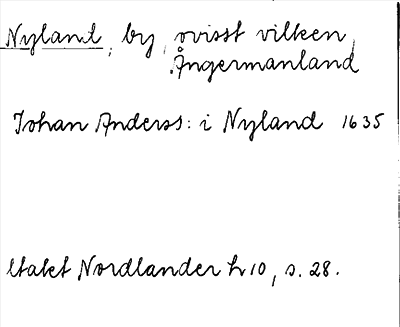 Nyland, by, ovisst vilken,
Ångermanland
Johan Anderss: i Nyland 1635
Utakt Nordlander h 10, s. 28.